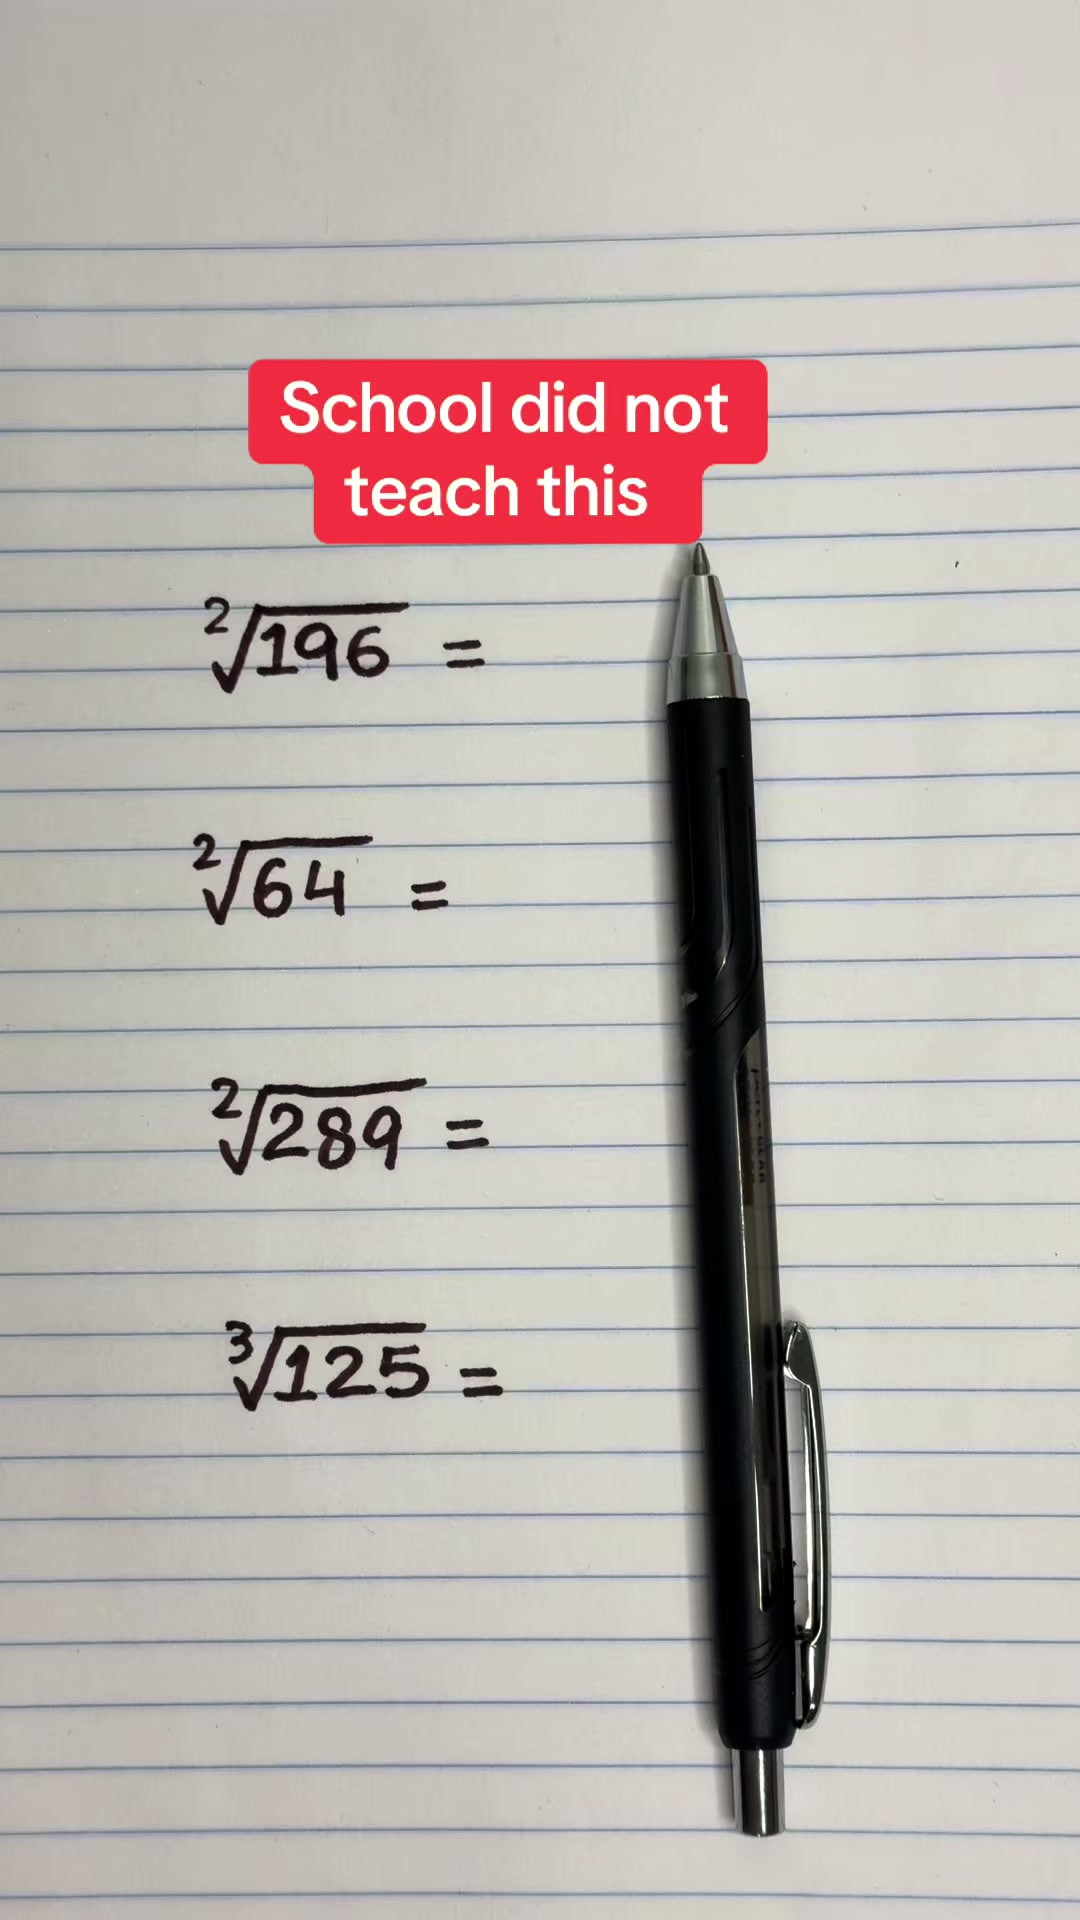 School did not
teach this
²√196 =
²√64 =
²√289 =
³√125 =